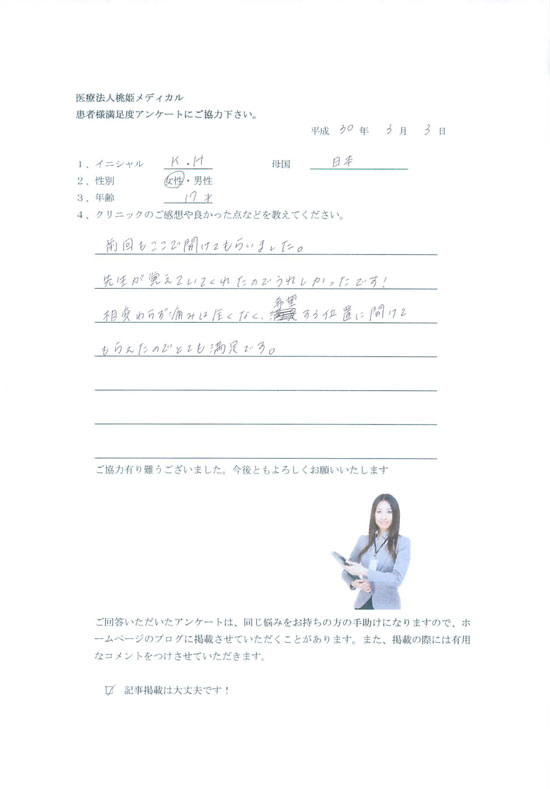 医療法人桃姫メディカル
患者様満足度アンケートにご協力下さい。
平成 30 年 3 月 3 日
1、イニシャル K.H 母国 日本
2、性別 女性・男性
3、年齢 17才
4、クリニックのご感想や良かった点などを教えてください。
前回もここで開けてもらいました。
先生が覚えていてくれたのでうれしかったです!
相変わらず痛みは全くなく、希望する位置に開けて
もらえたのでとても満足です。
ご協力有り難うございました。今後ともよろしくお願いいたします
ご回答いただいたアンケートは、同じ悩みをお持ちの方の手助けになりますので、ホ
ームページのブログに掲載させていただくことがあります。また、掲載の際には有用
なコメントをつけさせていただきます。
☑ 記事掲載は大丈夫です!